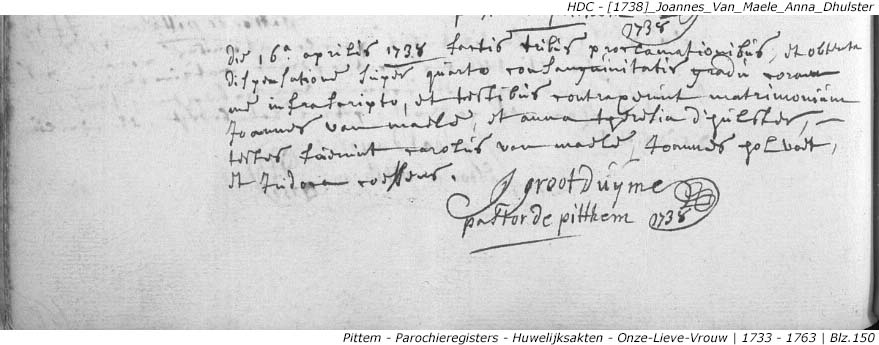 HDC - [1738]_Joannes_Van_Maele_Anna_Dhulster
1738
die 16a aprilis 1738 factis tribus proclamationibus, et obtenta
dispensatione super quarto consanguinitatis gradu coram
me infrascripto, et testibus contraxerunt matrimonium
Joannes van maele, et anna theresia d'hulster,
testes fuerunt carolus van maele, Joannes holvoet,
et Judoca coessens.
J grootduyme
pastor de pitthem 1738
Pittem - Parochieregisters - Huwelijksakten - Onze-Lieve-Vrouw | 1733 - 1763 | Blz.150